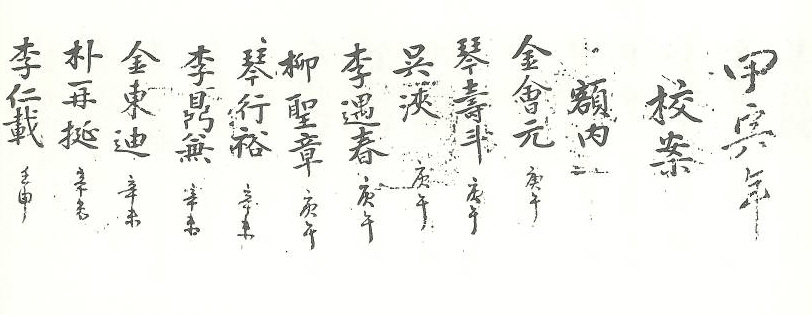 甲寅年
校案
額內
金會元 庚午
琴壽斗 庚午
吳浹 庚午
李遇春 庚午
柳聖章 庚午
琴行裕 辛未
李㒱 辛未
金東迪 辛未
朴再挺 辛未
李仁載 壬申